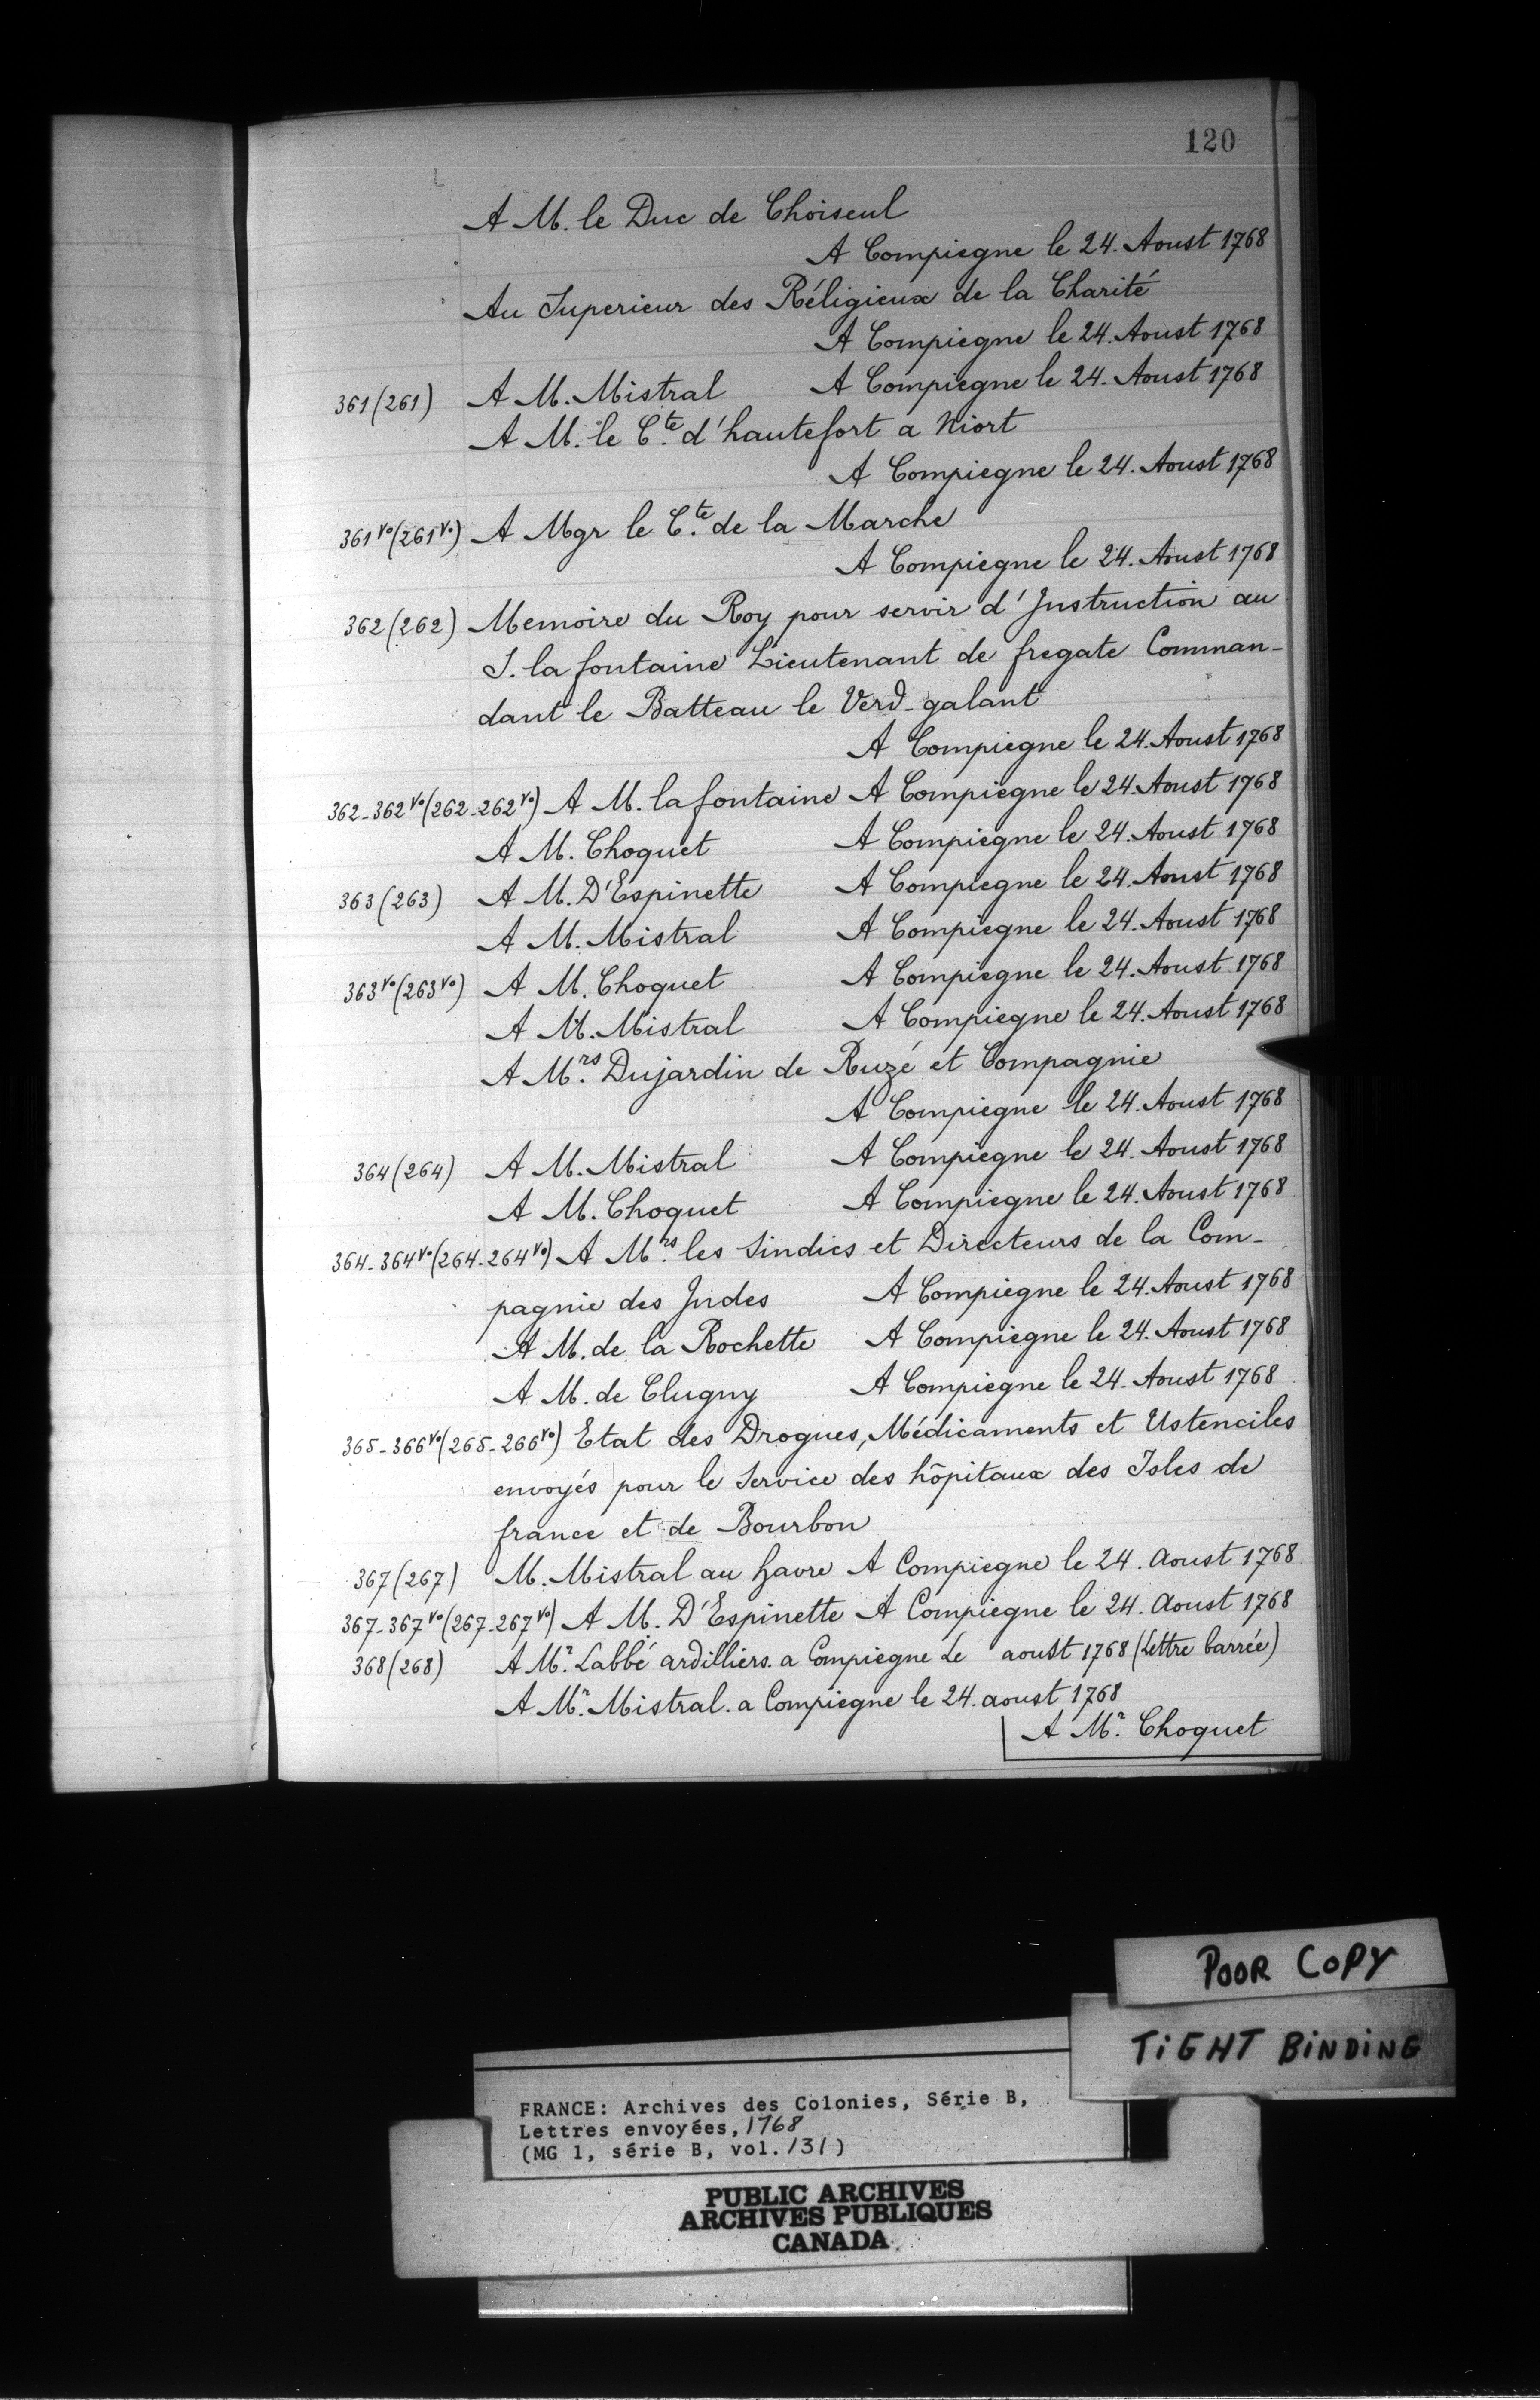 120
A M. le Duc de Choiseul
A Compiegne le 24. Aoust 1768
Au Superieur des Réligieux de la Charité
A Compiegne le 24. Aoust 1768
361 (261) A M. Mistral A Compiegne le 24. Aoust 1768
A M. le C.te d'hautefort a Niort
A Compiegne le 24. Aoust 1768
361 vo (261 vo) A Mgr le C.te de la Marche
A Compiegne le 24. Aoust 1768
362 (262) Memoire du Roy pour servir d'Instruction au
S. la fontaine Lieutenant de fregate Comman-
dant le Batteau le Verd-galant
A Compiegne le 24. Aoust 1768
362-362 vo (262-262 vo) A M. la fontaine A Compiegne le 24. Aoust 1768
A M. Choquet A Compiegne le 24. Aoust 1768
363 (263) A M. D'Espinette A Compiegne le 24. Aoust 1768
A M. Mistral A Compiegne le 24. Aoust 1768
363 vo (263 vo) A M. Choquet A Compiegne le 24. Aoust 1768
A M. Mistral A Compiegne le 24. Aoust 1768
A M.rs Dujardin de Ruzé et Compagnie
A Compiegne le 24. Aoust 1768
364 (264) A M. Mistral A Compiegne le 24. Aoust 1768
A M. Choquet A Compiegne le 24. Aoust 1768
364-364 vo (264-264 vo) A M.rs les Sindics et Directeurs de la Com-
pagnie des Indes A Compiegne le 24. Aoust 1768
A M. de la Rochette A Compiegne le 24. Aoust 1768
A M. de Clugny A Compiegne le 24. Aoust 1768
365-366 vo (265-266 vo) Etat des Drogues, Médicaments et Ustenciles
envoyés pour le Service des hôpitaux des Isles de
france et de Bourbon
367 (267) M. Mistral au havre A Compiegne le 24. Aoust 1768
367-367 vo (267-267 vo) A M. D'Espinette A Compiegne le 24. Aoust 1768
368 (268) A M.r Labbé ardilliers. a Compiegne Le aoust 1768 (Lettre barrée)
A M.r Mistral. a Compiegne le 24. aoust 1768
A M.r Choquet
POOR COPY
TIGHT BINDING
FRANCE: Archives des Colonies, Série B,
Lettres envoyées, 1768
(MG 1, série B, vol. 131)
PUBLIC ARCHIVES
ARCHIVES PUBLIQUES
CANADA